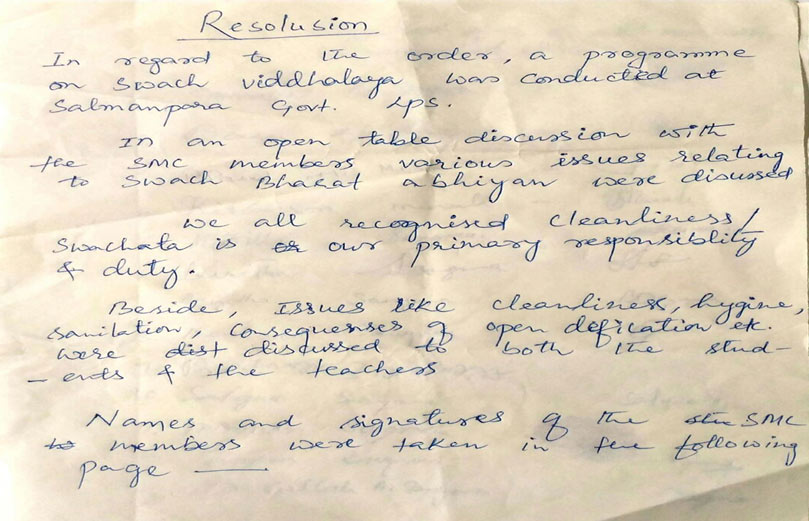 Resolusion
In regard to the order, a programme
on Swach Viddhalaya was conducted at
Salmanpara Govt. LPS.
In an open table discussion with
the SMC members various issues relating
to Swach Bharat abhiyan were disussed
we all recognised cleanliness/
Swachata is our primary responsiblity
& duty.
Beside, Issues like cleanliness, hygine,
sanitation, Consequenses of open defication etc.
were discussed to both the stud-
- ents & the teachers
Names and signatures of the SMC
members were taken in the following
page —